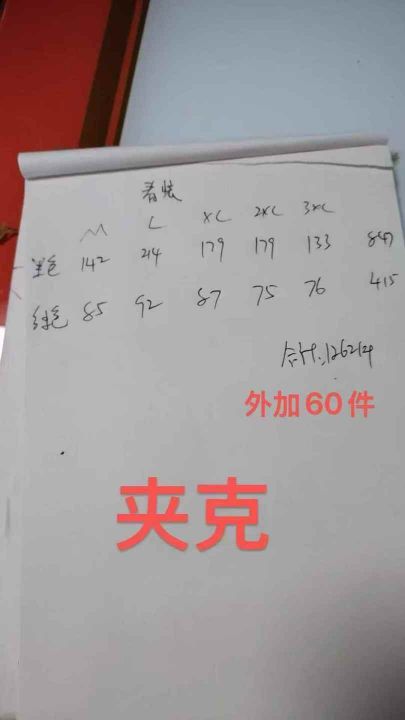 春装
M L XL 2XL 3XL
黑色 142 214 179 179 133 847
绿色 85 92 87 75 76 415
合计:1262件
外加60件
夹克